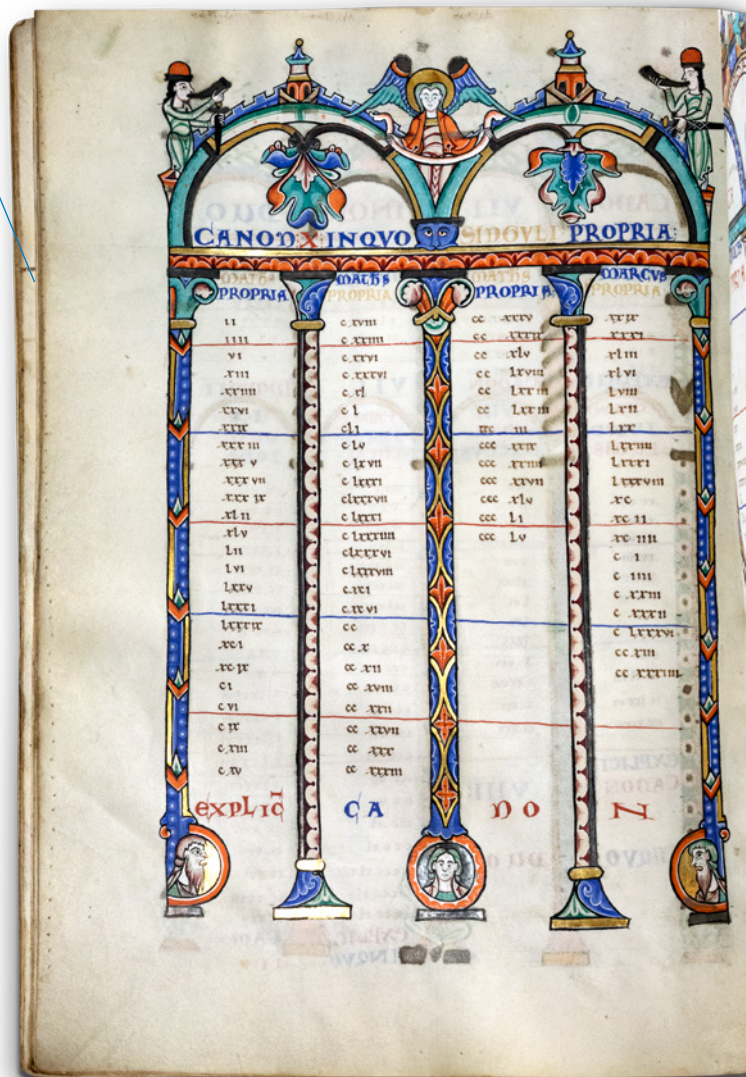 CANON X INQVO SINGVLI PROPRIA:
MATHS
PROPRIA
ii
iiii
vi
xiii
xxiiii
xxvi
xxix
xxx iii
xxx v
xxx vii
xxx ix
xl ii
xlv
lii
lvi
lxxv
lxxxi
lxxxix
xc i
xc ix
ci
c vi
c ix
c xiii
c xv
MATHS
PROPRIA
c xviii
c xxiiii
c xxvi
c xxxvi
c xl
c l
cli
c lv
c lxvii
c lxxxi
clxxxvii
c lxxxi
c lxxxiiii
clxxxvi
clxxxviii
c xci
c xc vi
cc
cc x
cc xii
cc xviii
cc xxii
cc xxvii
cc xxx
cc xxxiii
MATHS
PROPRIA
cc xxxv
cc xlv
cc lxviii
cc lxxiii
ccc iii
ccc xxix
ccc xxiiii
ccc xxvii
ccc xlv
ccc li
ccc lv
MARCVS
PROPRIA
xxxi
xl iii
xl vi
lviii
lxii
lxx
lxxiiii
lxxxi
lxxxviii
xc
xc ii
xc iiii
c i
c iiii
c xxiii
c xxxii
c lxxxvi
cc xiii
cc xxxiiii
EXPLIC̄ CA NO N